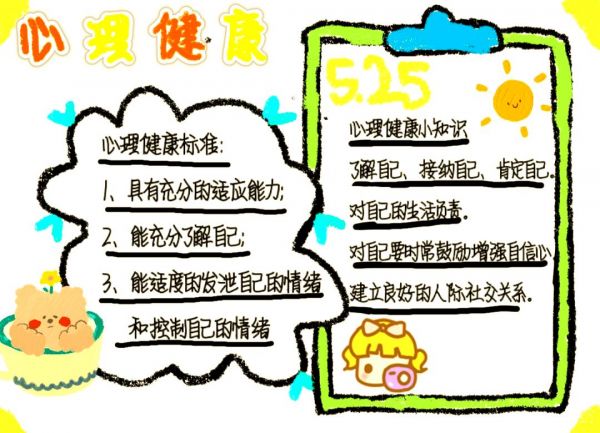 心理健康
心理健康标准:
1、具有充分的适应能力;
2、能充分了解自己;
3、能适度的发泄自己的情绪
和控制自己的情绪
5.25
心理健康小知识
了解自己、接纳自己、肯定自己.
对自己的生活负责.
对自己要时常鼓励增强自信心
建立良好的人际社交关系.